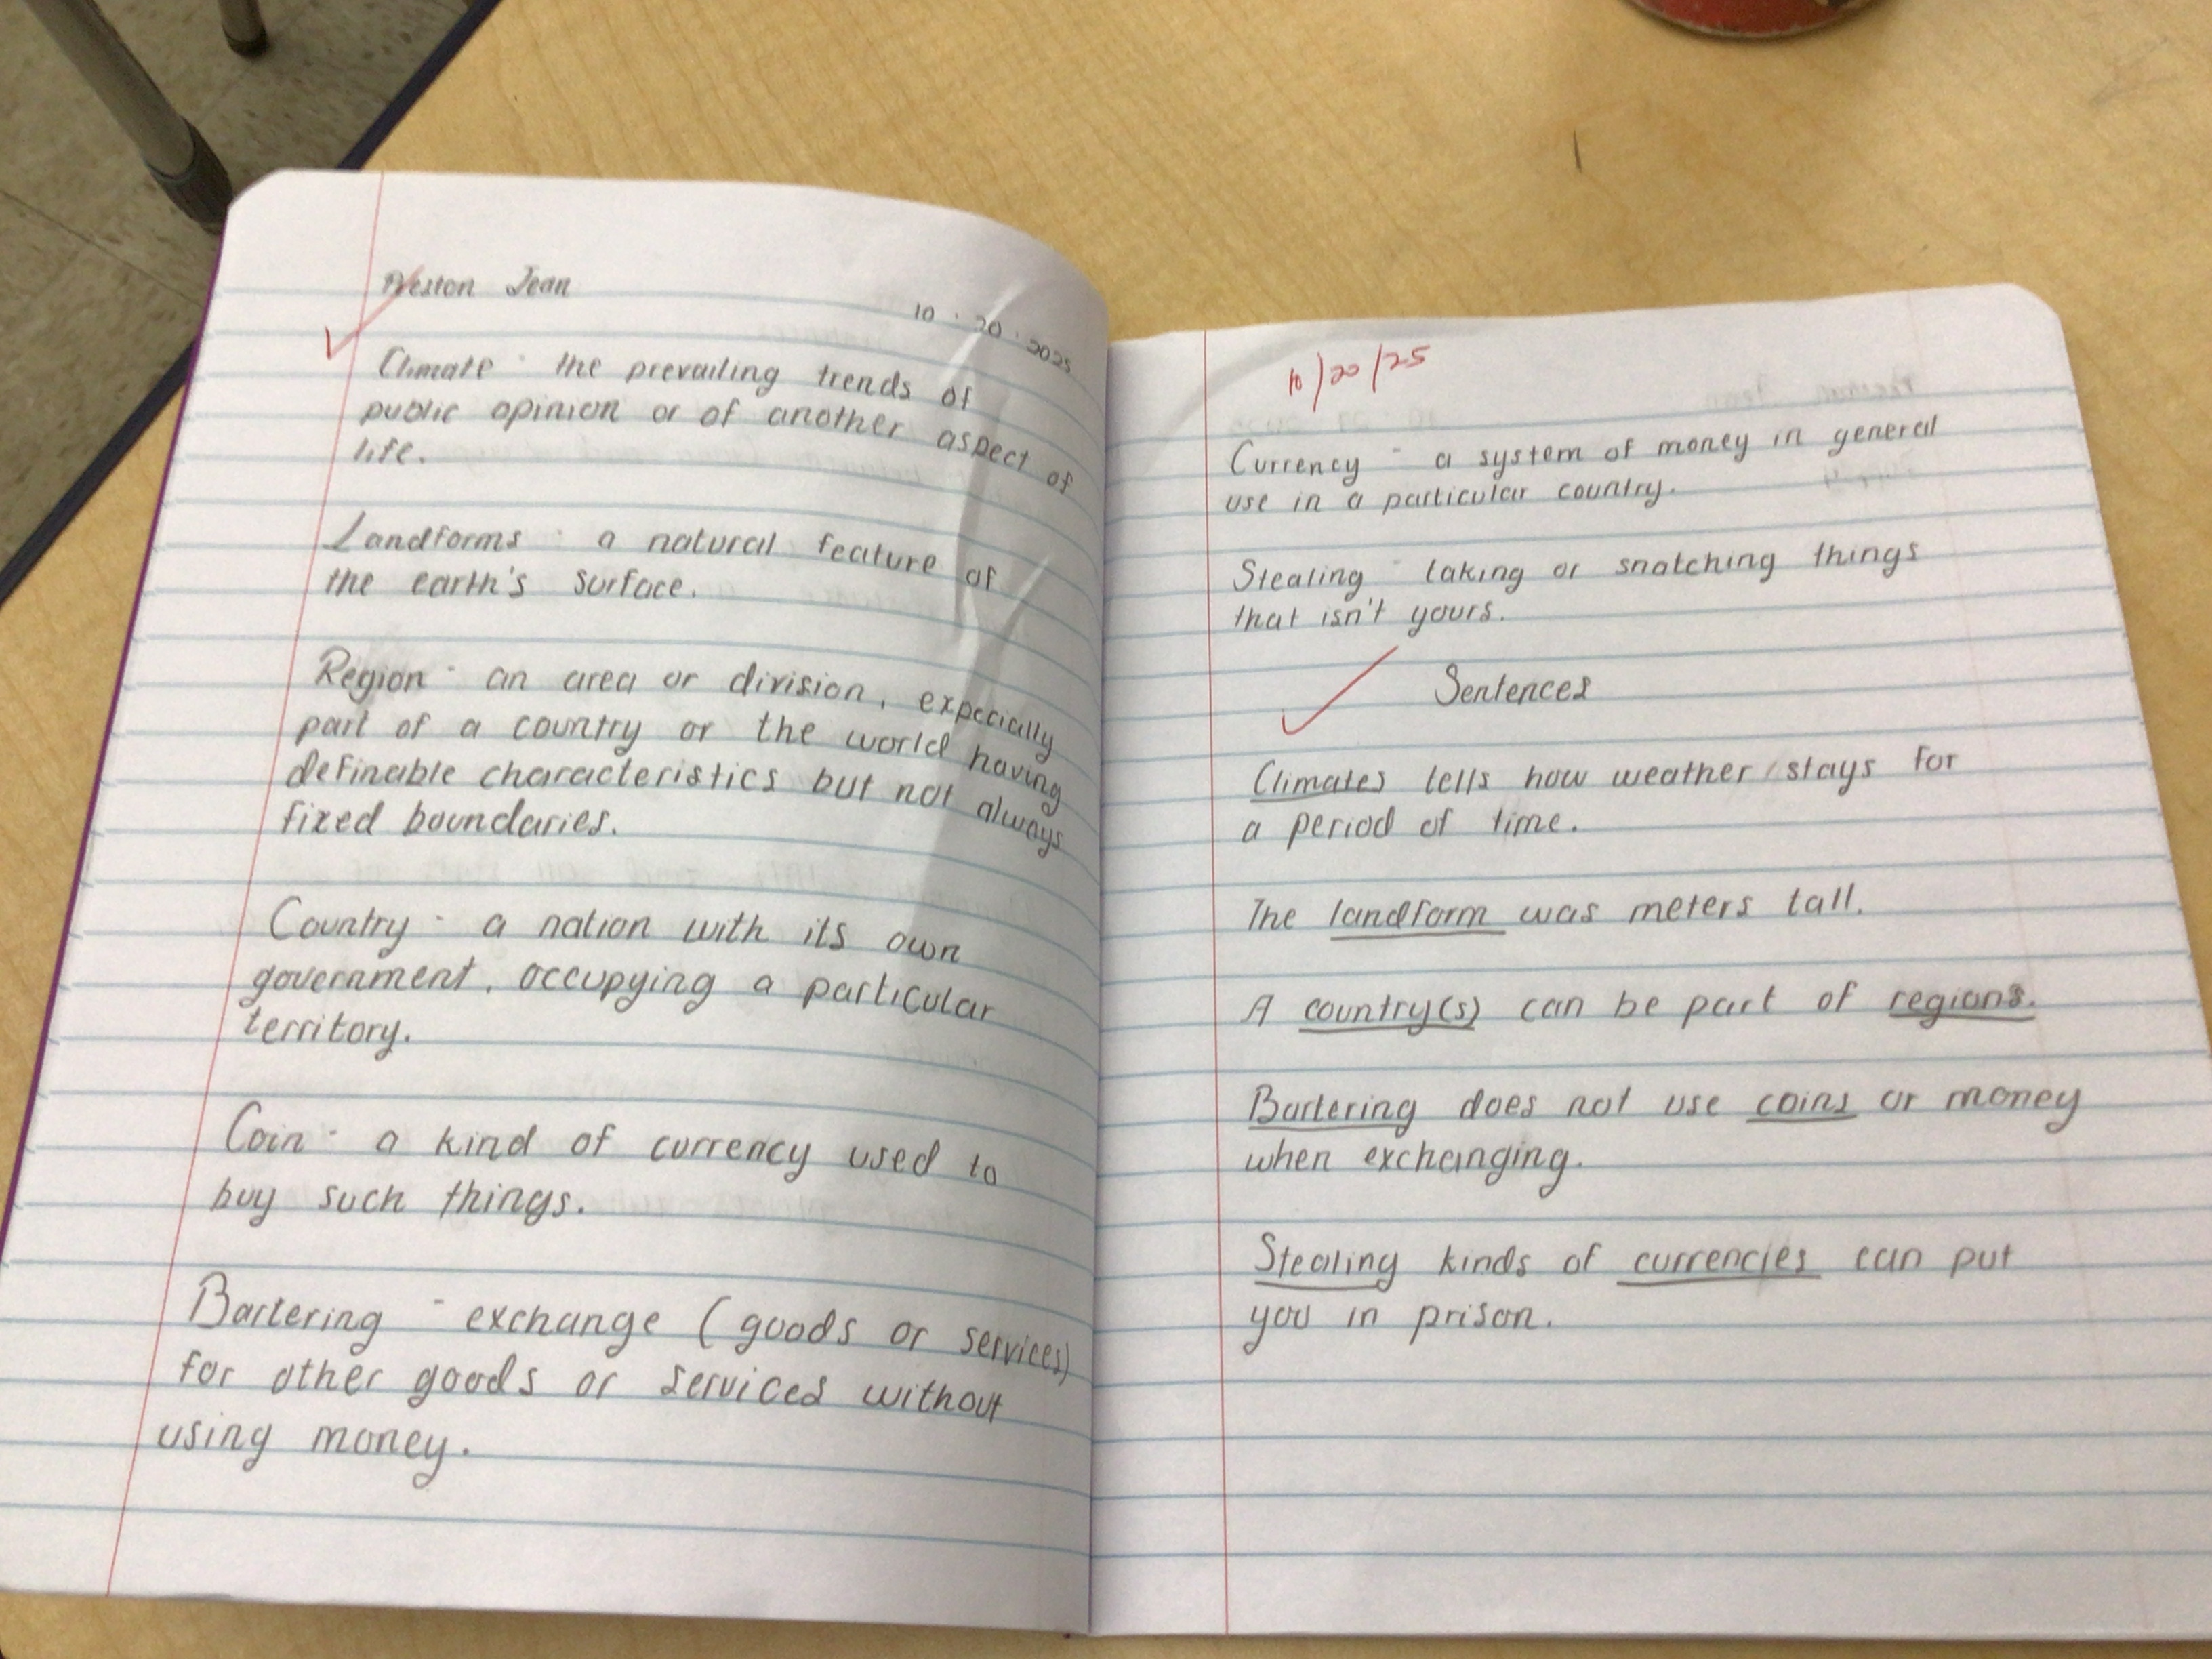 Preston Jean
10 · 20 · 2025
Climate - the prevailing trends of
public opinion or of another aspect of
life.
Landforms - a natural feature of
the earth's surface.
Region - an area or division, expecially
part of a country or the world having
definable characteristics but not always
fixed boundaries.
Country - a nation with its own
government, occupying a particular
territory.
Coin - a kind of currency used to
buy such things.
Bartering - exchange (goods or services)
for other goods or services without
using money.
10/20/25
Currency - a system of money in general
use in a particular country.
Stealing - taking or snatching things
that isn't yours.
Sentences
Climates tells how weather stays for
a period of time.
The landform was meters tall.
A country(s) can be part of regions.
Bartering does not use coins or money
when exchanging.
Stealing kinds of currencies can put
you in prison.